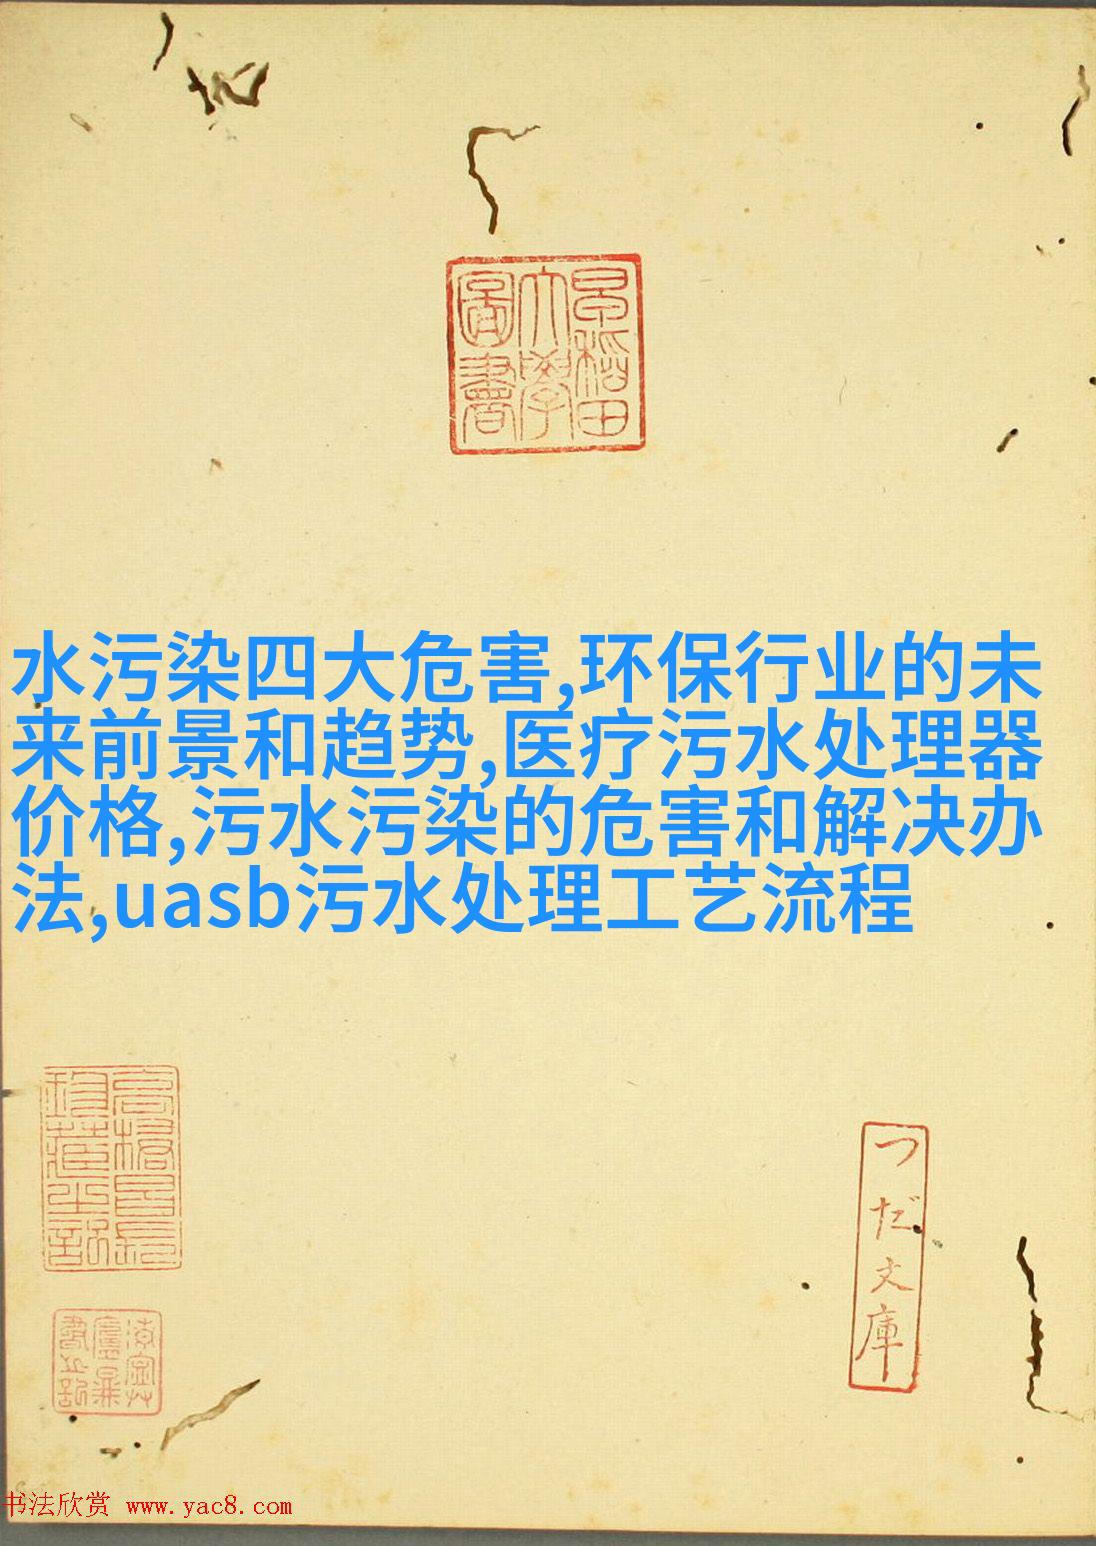 早稻田
大學
圖書
水污染四大危害,环保行业的未
来前景和趋势,医疗污水处理器
价格,污水污染的危害和解决办
法,uasb污水处理工艺流程
つだ文庫
书法欣赏 www.yac8.com